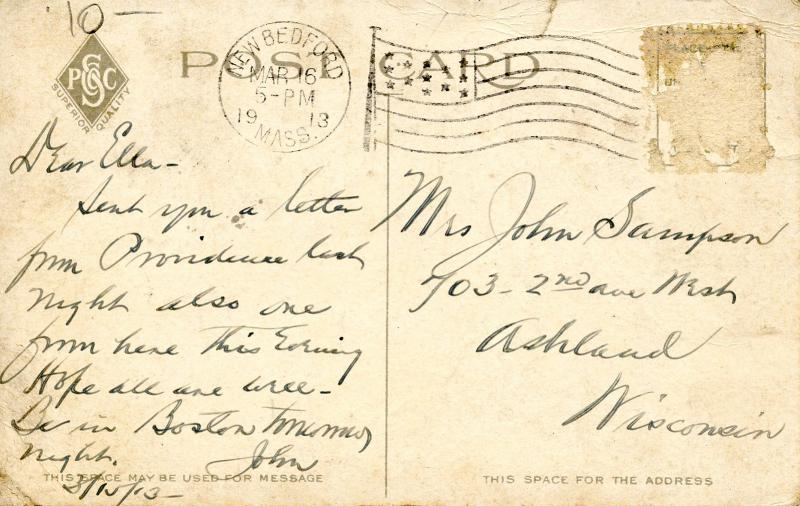 10-
PGSC
SUPERIOR QUALITY
POST CARD
NEW BEDFORD
MAR 16
5-PM
1913
MASS.
Dear Ella-
Sent you a letter
from Providence last
night also one
from here this Evening
Hope all are well-
Be in Boston tomorrow
night. John
THIS SPACE MAY BE USED FOR MESSAGE
Mrs John Sampson
703-2nd ave West
Ashland
Wisconsin
THIS SPACE FOR THE ADDRESS